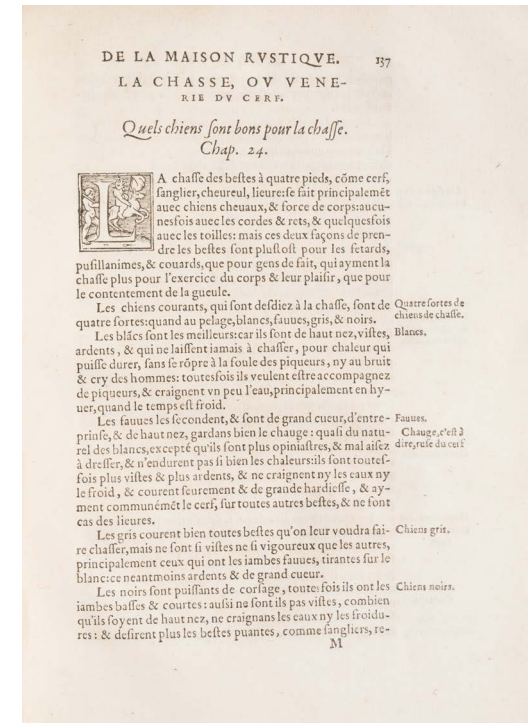 DE LA MAISON RVSTIQVE. 137
LA CHASSE, OV VENE-
RIE DV CERF.
Quels chiens ſont bons pour la chaſſe.
Chap. 24.
LA chaſſe des beſtes à quatre pieds, cõme cerf,
ſanglier, cheureul, lieure: ſe fait principalemẽt
auec chiens cheuaux, & force de corps: aucu-
nesfois auec les cordes & rets, & quelquesfois
auec les toilles: mais ces deux façons de pren-
dre les beſtes ſont pluſtoſt pour les fetards,
puſillanimes, & couards, que pour gens de fait, qui ayment la
chaſſe plus pour l'exercice du corps & leur plaiſir, que pour
le contentement de la gueule.
Les chiens courants, qui ſont deſdiez à la chaſſe, ſont de
quatre ſortes: quand au pelage, blancs, fauues, gris, & noirs.
Quatre ſortes de
chiens de chaſſe.
Les blãcs ſont les meilleurs: car ils ſont de haut nez, viſtes,
Blancs.
ardents, & qui ne laiſſent iamais à chaſſer, pour chaleur qui
puiſſe durer, ſans ſe rõpre à la foule des piqueurs, ny au bruit
& cry des hommes: toutesfois ils veulent eſtre accompagnez
de piqueurs, & craignent vn peu l'eau, principalement en hy-
uer, quand le temps eſt froid.
Les fauues les ſecondent, & ſont de grand cueur, d'entre-
Fauues.
prinſe, & de haut nez, gardans bien le chauge: quaſi du natu-
rel des blancs, excepté qu'ils ſont plus opiniaſtres, & mal aiſez
Chauge, c'eſt à
dire, ruſe du cerf
à dreſſer, & n'endurent pas ſi bien les chaleurs: ils ſont toutes-
fois plus viſtes & plus ardents, & ne craignent ny les eaux ny
le froid, & courent ſeurement & de grande hardieſſe, & ay-
ment communémẽt le cerf, ſur toutes autres beſtes, & ne font
cas des lieures.
Les gris courent bien toutes beſtes qu'on leur voudra fai-
Chiens gris.
re chaſſer, mais ne ſont ſi viſtes ne ſi vigoureux que les autres,
principalement ceux qui ont les iambes fauues, tirantes ſur le
blanc: ce neantmoins ardents & de grand cueur.
Les noirs ſont puiſſants de corſage, toutesfois ils ont les
Chiens noirs.
iambes baſſes & courtes: auſsi ne ſont ils pas viſtes, combien
qu'ils ſoyent de haut nez, ne craignans les eaux ny les froidu-
res: & deſirent plus les beſtes puantes, comme ſangliers, re-
M